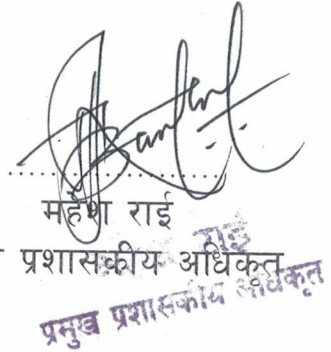 महेश राई
प्रशासकीय अधिकृत
राई
प्रमुख प्रशासकीय अधिकृत